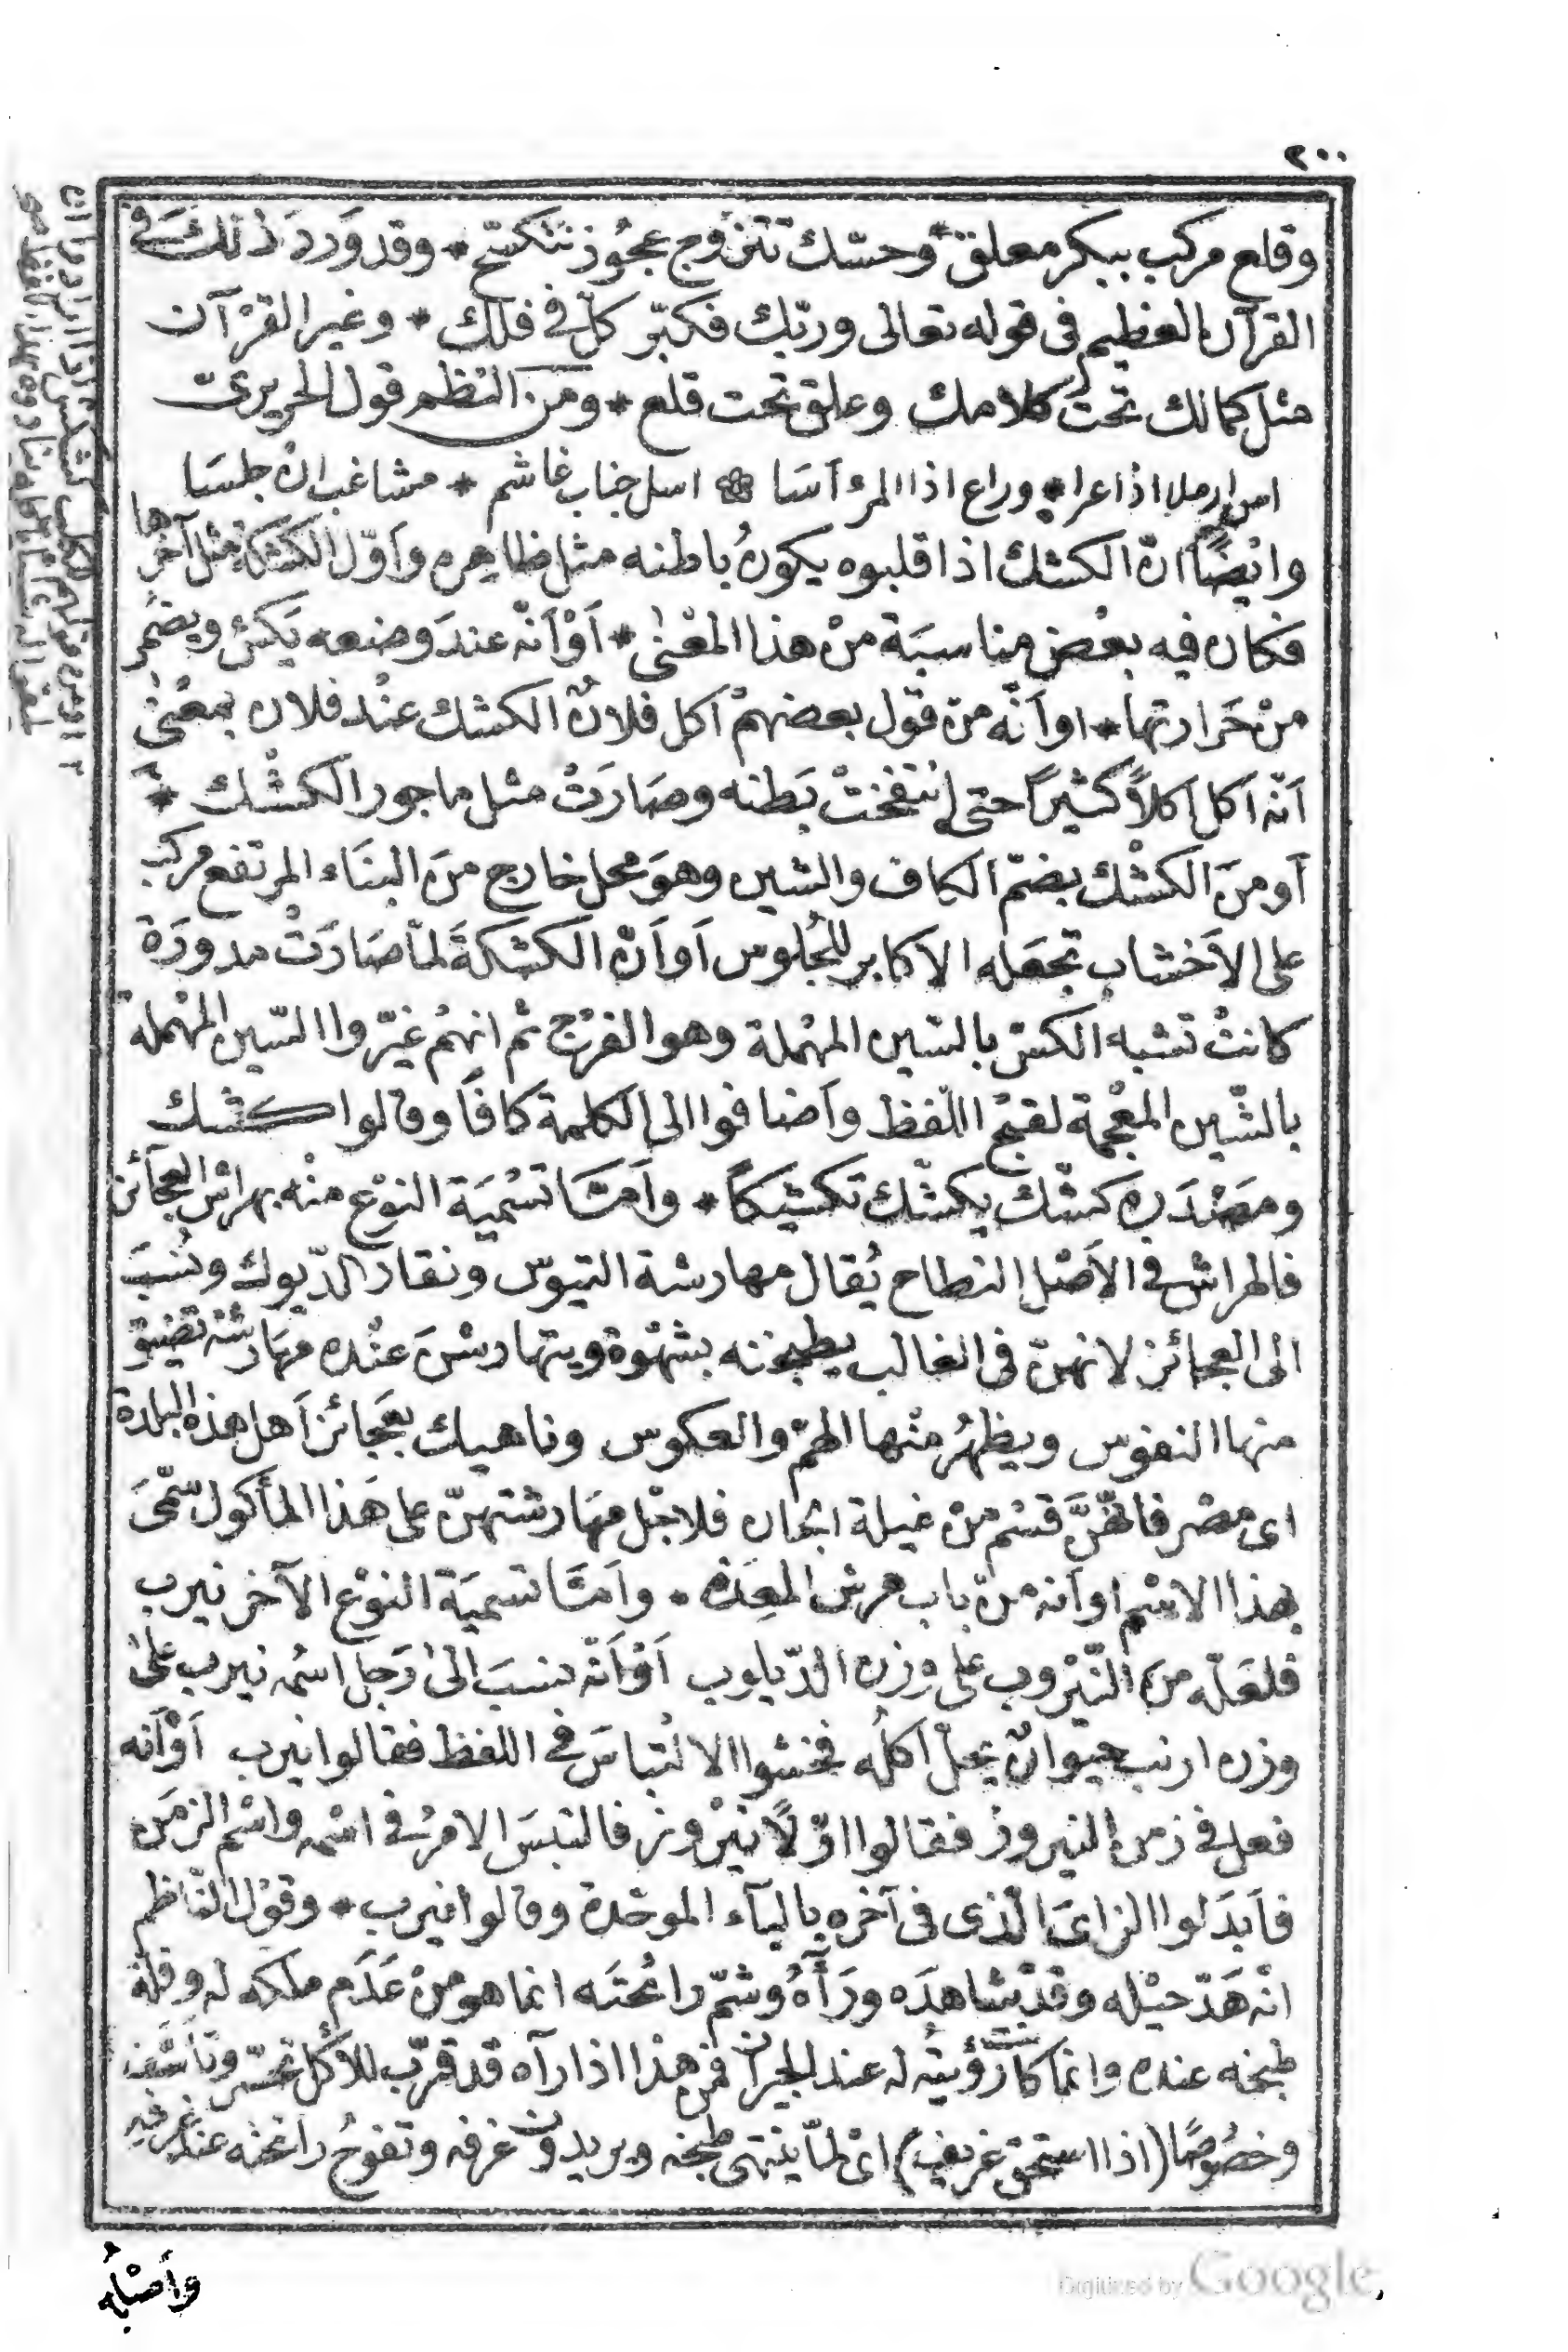 ٢٠٠
وقلع مركب ببكر معلق * وحسّك تتزوج عجُوز تتكسّح * وقد وَرَدَ ذٰلكَ فى
القرآن العظيم فى قوله تعالى وربّك فكبّر كلّ فى فلك * وغير القرْآن
مثل كمالك تحت كلامك وعلق تحت قلع * ومن النظم قول الحريرىّ
اس ارملا اذا عرا * وراع اذا المرء آسَا اسل جناب غاشم * مشاغب ان جلسَا
وايْضًا انّ الكشك اذا قلبوه يكونُ باطنه مثل ظاهره وأوّل الكشكة مثل آخرها
فكان فيه بعْض مناسبَة منْ هذا المعْنىٰ * أَوْ أَنّه عندَ وضعه يَكنّ ويضمر
منْ حَرارتها * او أَنّه منْ قول بعضهمْ أكل فلانٌ الكشك عنْد فلان بمعْنىٰ
أنّه أكل أكلاً كثيرًا حتى انْتفختْ بَطنه وصَارَتْ مثل ماجور الكشْك *
أو منَ الكشْك بضمّ الكاف والشين وهوَ محل خارج منَ البنَاء المرتفع مركب
على الأخشاب تجعَله الاكابر للجُلوس أو أنّ الكشكةَ لمّا صَارَتْ مدورَة
كانتْ تشبه الكسّ بالسّين المهْملة وهو الفرْج ثم انهُمْ غيّروا السّين المهْملة
بالشّين المعْجمة لقبْح اللّفظ وأضافوا الى الكلمة كافًا وقالوا كشك
ومصْدَره كشّك يكشّك تكشيكًا * وأمّا تسْميَة النوْع منْه بهراش العجآئز
فالهراش فى الأصْل النطاح يُقال مهارشة التيوس ونقار الدّيوك ونُسبَ
الى العجائز لانهنّ فى الغالب يطبخونه بشهْوة ويتهارشنَ عنْده مهَارشة تضيق
منها النفوس ويظهرُ منْها الهمّ والعكوس وناهيك بعَجائز أهل هذه البلدة
اى مصْر فانهنَّ قسْم منْ غيلة الجان فلاجْل مهَارشتهنّ على هَذا المأكول سمّىَ
بهذا الاسْم او أنه منْ باب هرش المعِدَه * وأمّا تسميَة النوْع الآخر نيرب
فلعَلّه منَ النّيْروب على وزن الدّيلوب أوْ أنّه نسبَ الىٰ رَجل اسْمه نيرب علىٰ
وزن ارنب حيَوانٌ يحلّ أكلُه فخشوا الالْتباسَ فى اللفظ فقالوا نيرب أوْ أنه
فعل فى زمن النيروز فقالوا أوّلاً نيْروز فالتبسَ الامْرُ فى اسْمه واسْم الزمَن
فأبدَلوا الزاىَ الّذى فى آخره بالبآء الموحّدة وقالوا نيرب * وقوْل النّاظم
انْه هَدّ حيْله وقدْ شاهدَه ورَأهُ وشمّ رائحْتَه انما هو منْ عَدَم ملكه له وقلّة
طبخه عنده وانما كانَ رؤيته له عند الجيران فمنْ هذا اذا رآه قد قرّب للأكل تحسّر وتأسَّف
وخصُوصًا (اذا استحق غريف) اىْ لمّا ينْتهى طبخه ويريدون غرفه وتفوحُ رائحته عند غرفه
وأصْله
Digitized by Google